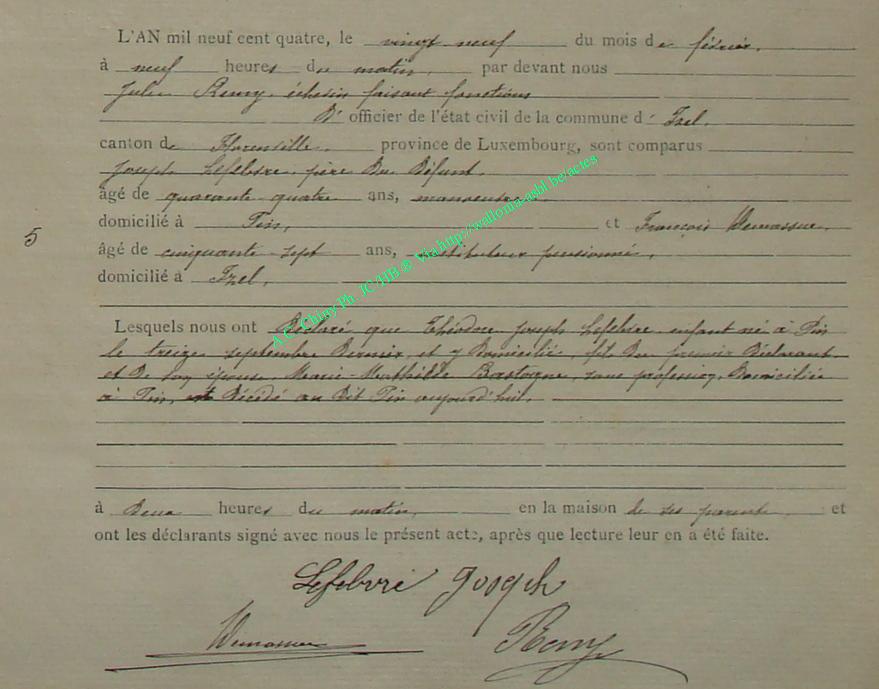 L'AN mil neuf cent quatre, le vingt neuf du mois de février,
à neuf heures du matin, par devant nous
Jules Remy, échevin faisant fonctions
D' officier de l'état civil de la commune d' Izel,
canton de Florenville, province de Luxembourg, sont comparus
Joseph Lefebvre, père du défunt,
âgé de quarante quatre ans, manoeuvre
domicilié à Pin, et François
5
âgé de cinquante-sept ans, instituteur pensionné,
domicilié à Izel,
Lesquels nous ont déclaré que Théodore Joseph Lefebvre, enfant né à Pin
le treize septembre dernier, et y domicilié, fils du premier déclarant
et de son épouse Marie-Mathilde Bastogne, sans profession, domiciliée
à Pin, est décédé au dit Pin aujourd'hui,
à deux heures du matin, en la maison de ses parents et
ont les déclarants signé avec nous le présent acte, après que lecture leur en a été faite.
Lefebvre Joseph
Remy
A.C. Chiny Ph. JC/HB ® Via http://wallonia-asbl.be/actes